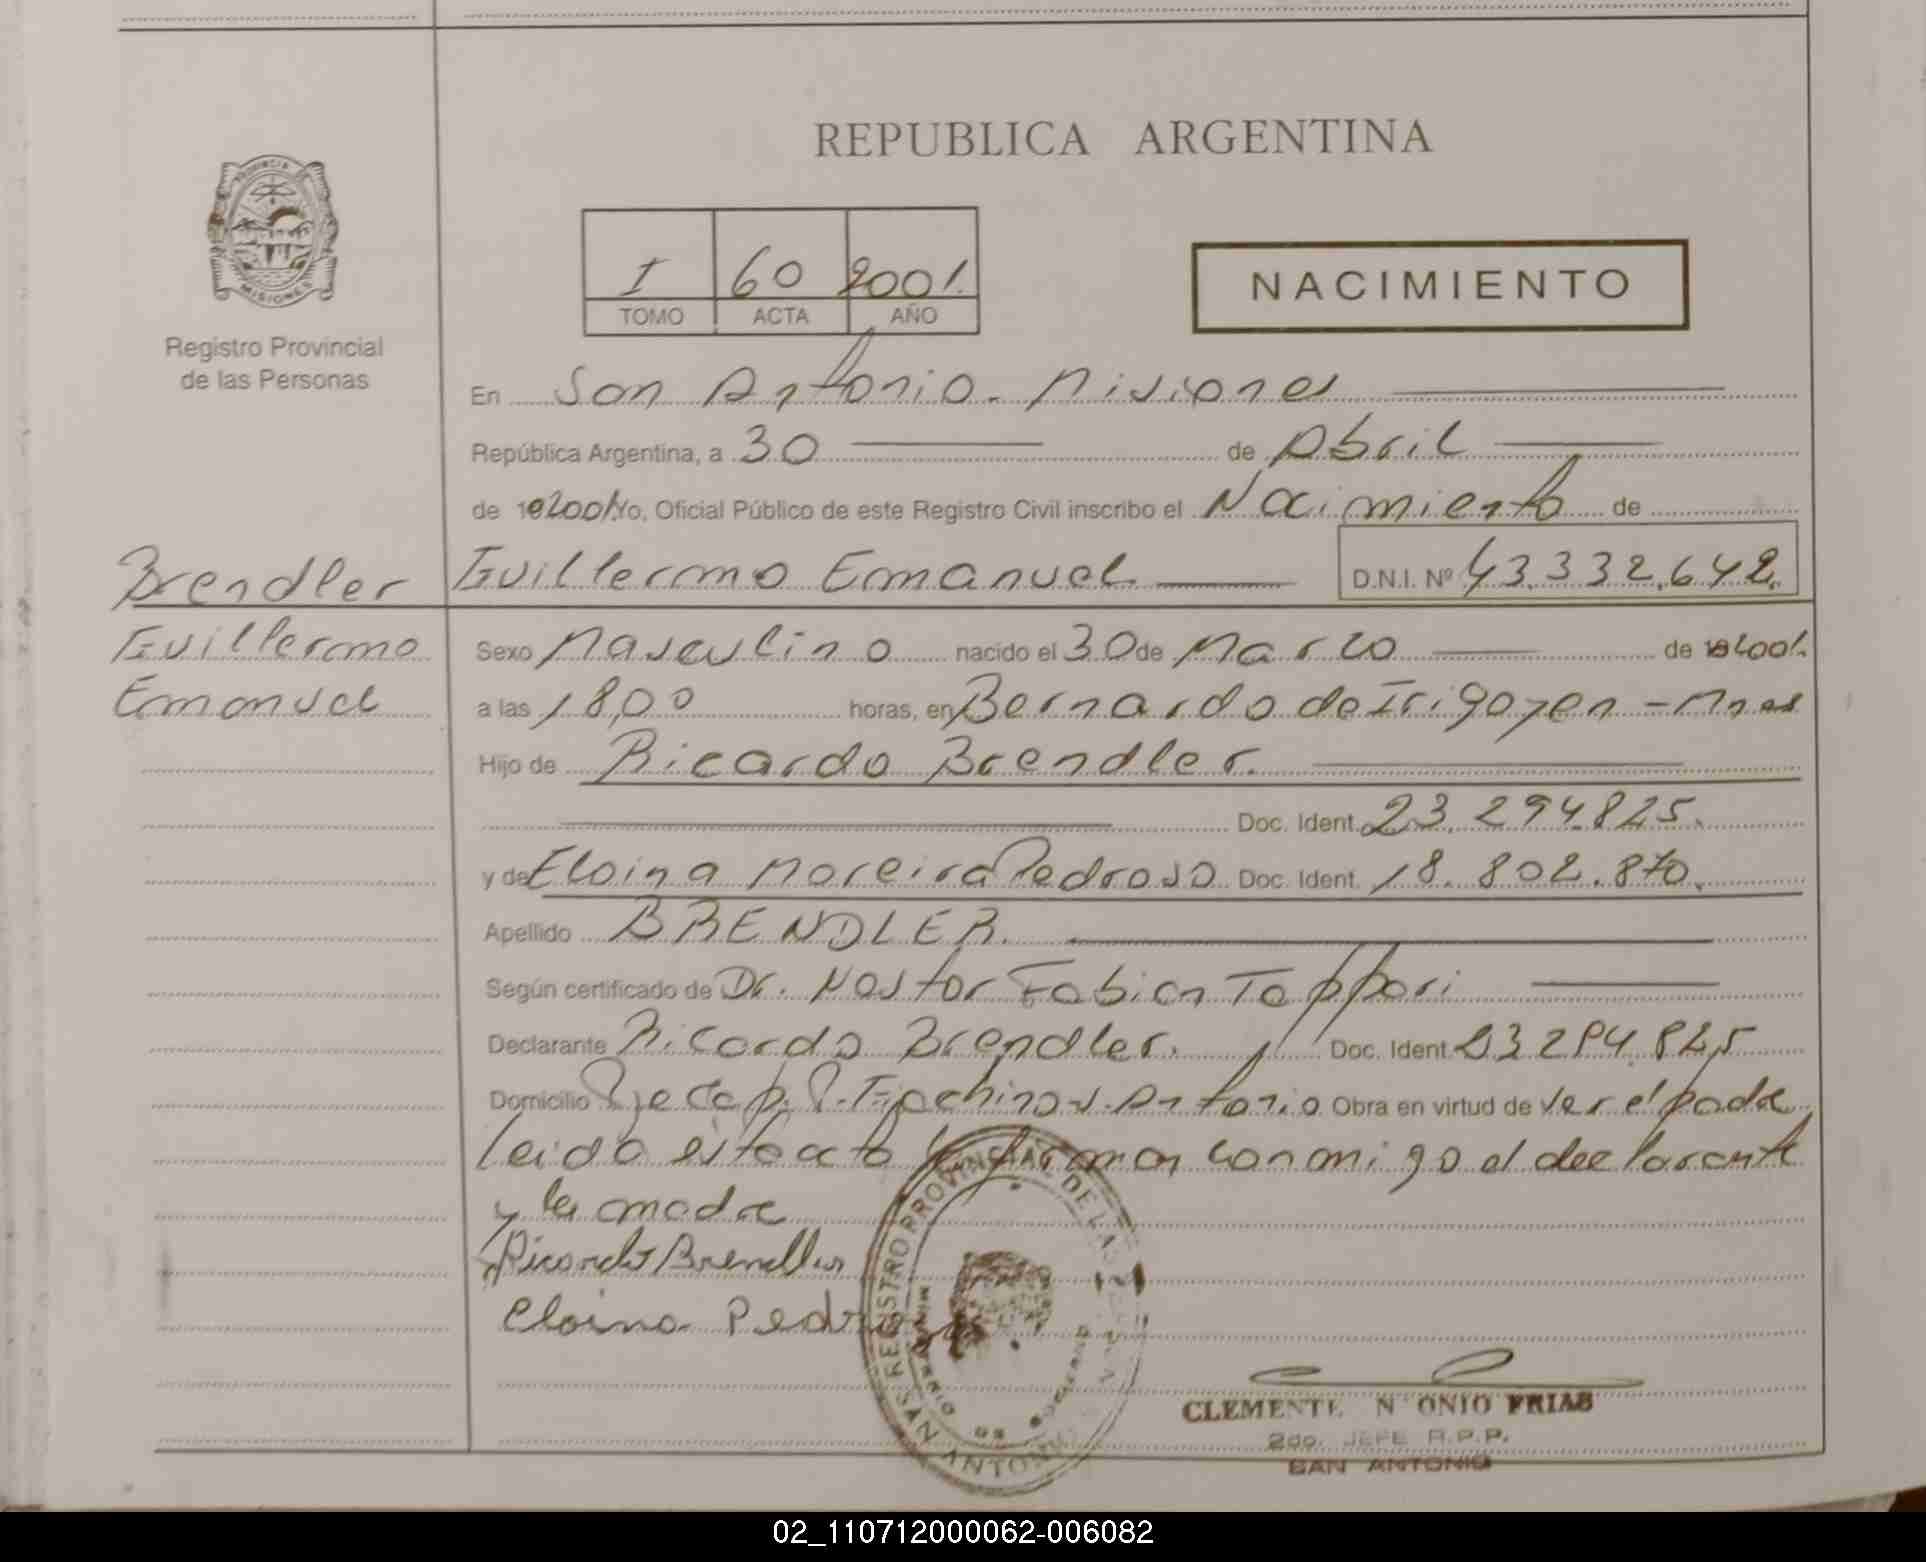 REPUBLICA ARGENTINA
PROVINCIA DE
MISIONES
Registro Provincial
de las Personas
I 60 2001.
TOMO ACTA AÑO
NACIMIENTO
En San Antonio. Misiones
República Argentina, a 30 de Abril
de 2001. Yo, Oficial Público de este Registro Civil inscribo el Nacimiento de
Brendler Guillermo Emanuel D.N.I. Nº 43.332.642.
Guillermo
Emanuel
Sexo Masculino nacido el 30 de Marzo de 2001.
a las 18,00 horas, en Bernardo de Irigoyen - Mnes
Hijo de Ricardo Brendler.
Doc. Ident. 23.294.825.
y de Eloina Moreira Pedroso Doc. Ident. 18.802.870.
Apellido BRENDLER.
Según certificado de Dr. Nestor Fabian Tappari
Declarante Ricardo Brendler. Doc. Ident. 23294.825
Domicilio S. Antonio Obra en virtud de ser el padre
leida el acta firman conmigo el declarante
y la madre
Ricardo Brendler
Eloina Pedroso
REGISTRO PROVINCIAL DE LAS
SAN ANTONIO
CLEMENTE N ONIO FRIAS
2do. JEFE R.P.P.
SAN ANTONIO
02_110712000062-006082